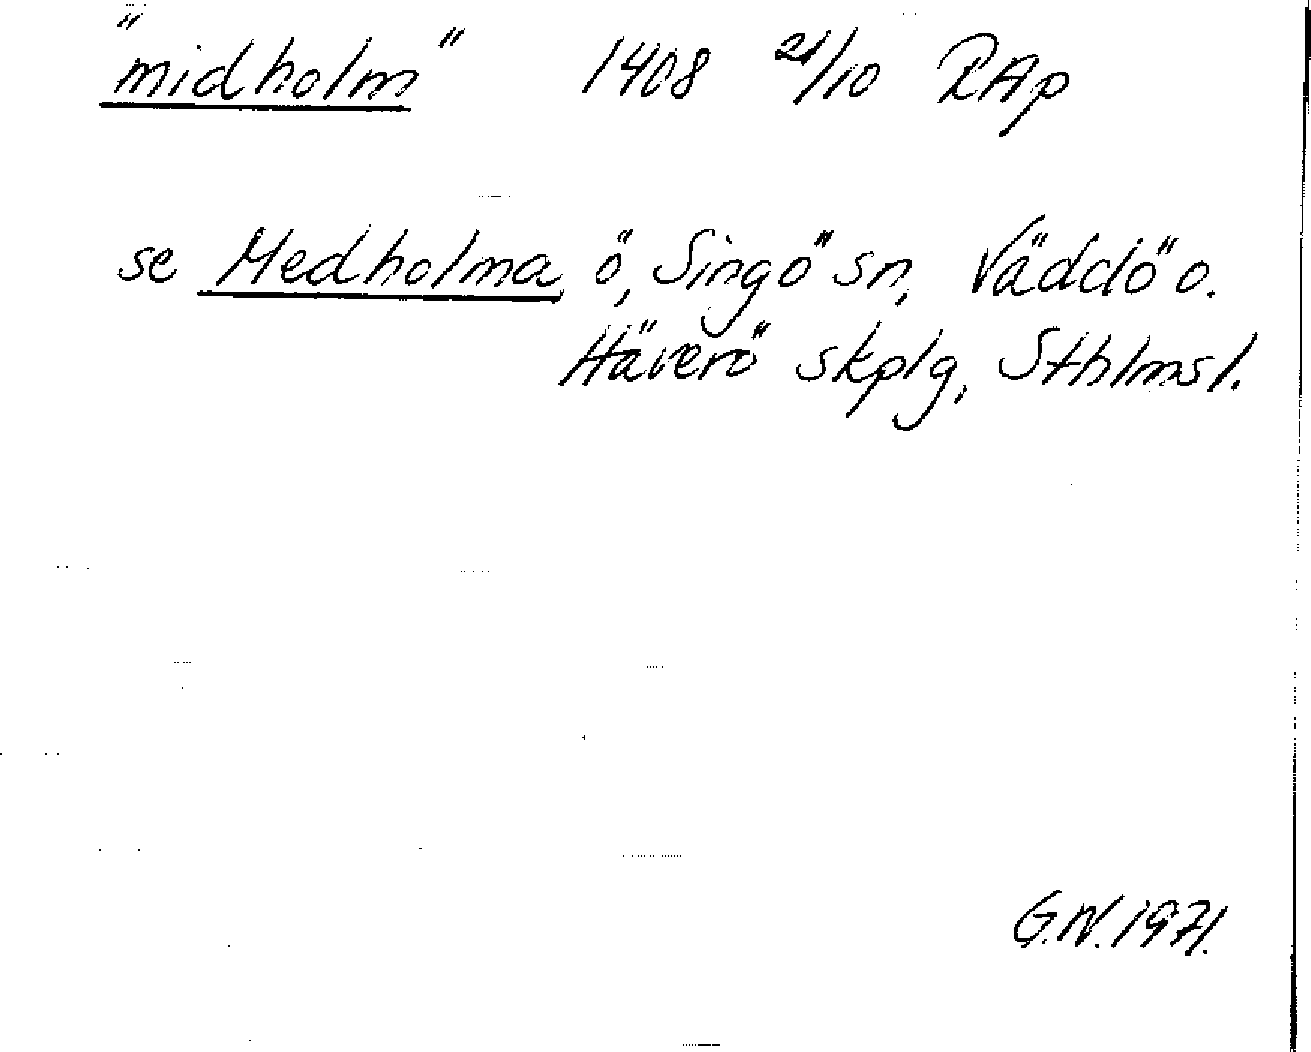 "midholm" 1408 21/10 RAp
se Medholma ö, Singö sn, Väddö o.
Häverö skplg, Sthlmsl.
G.N. 1971.